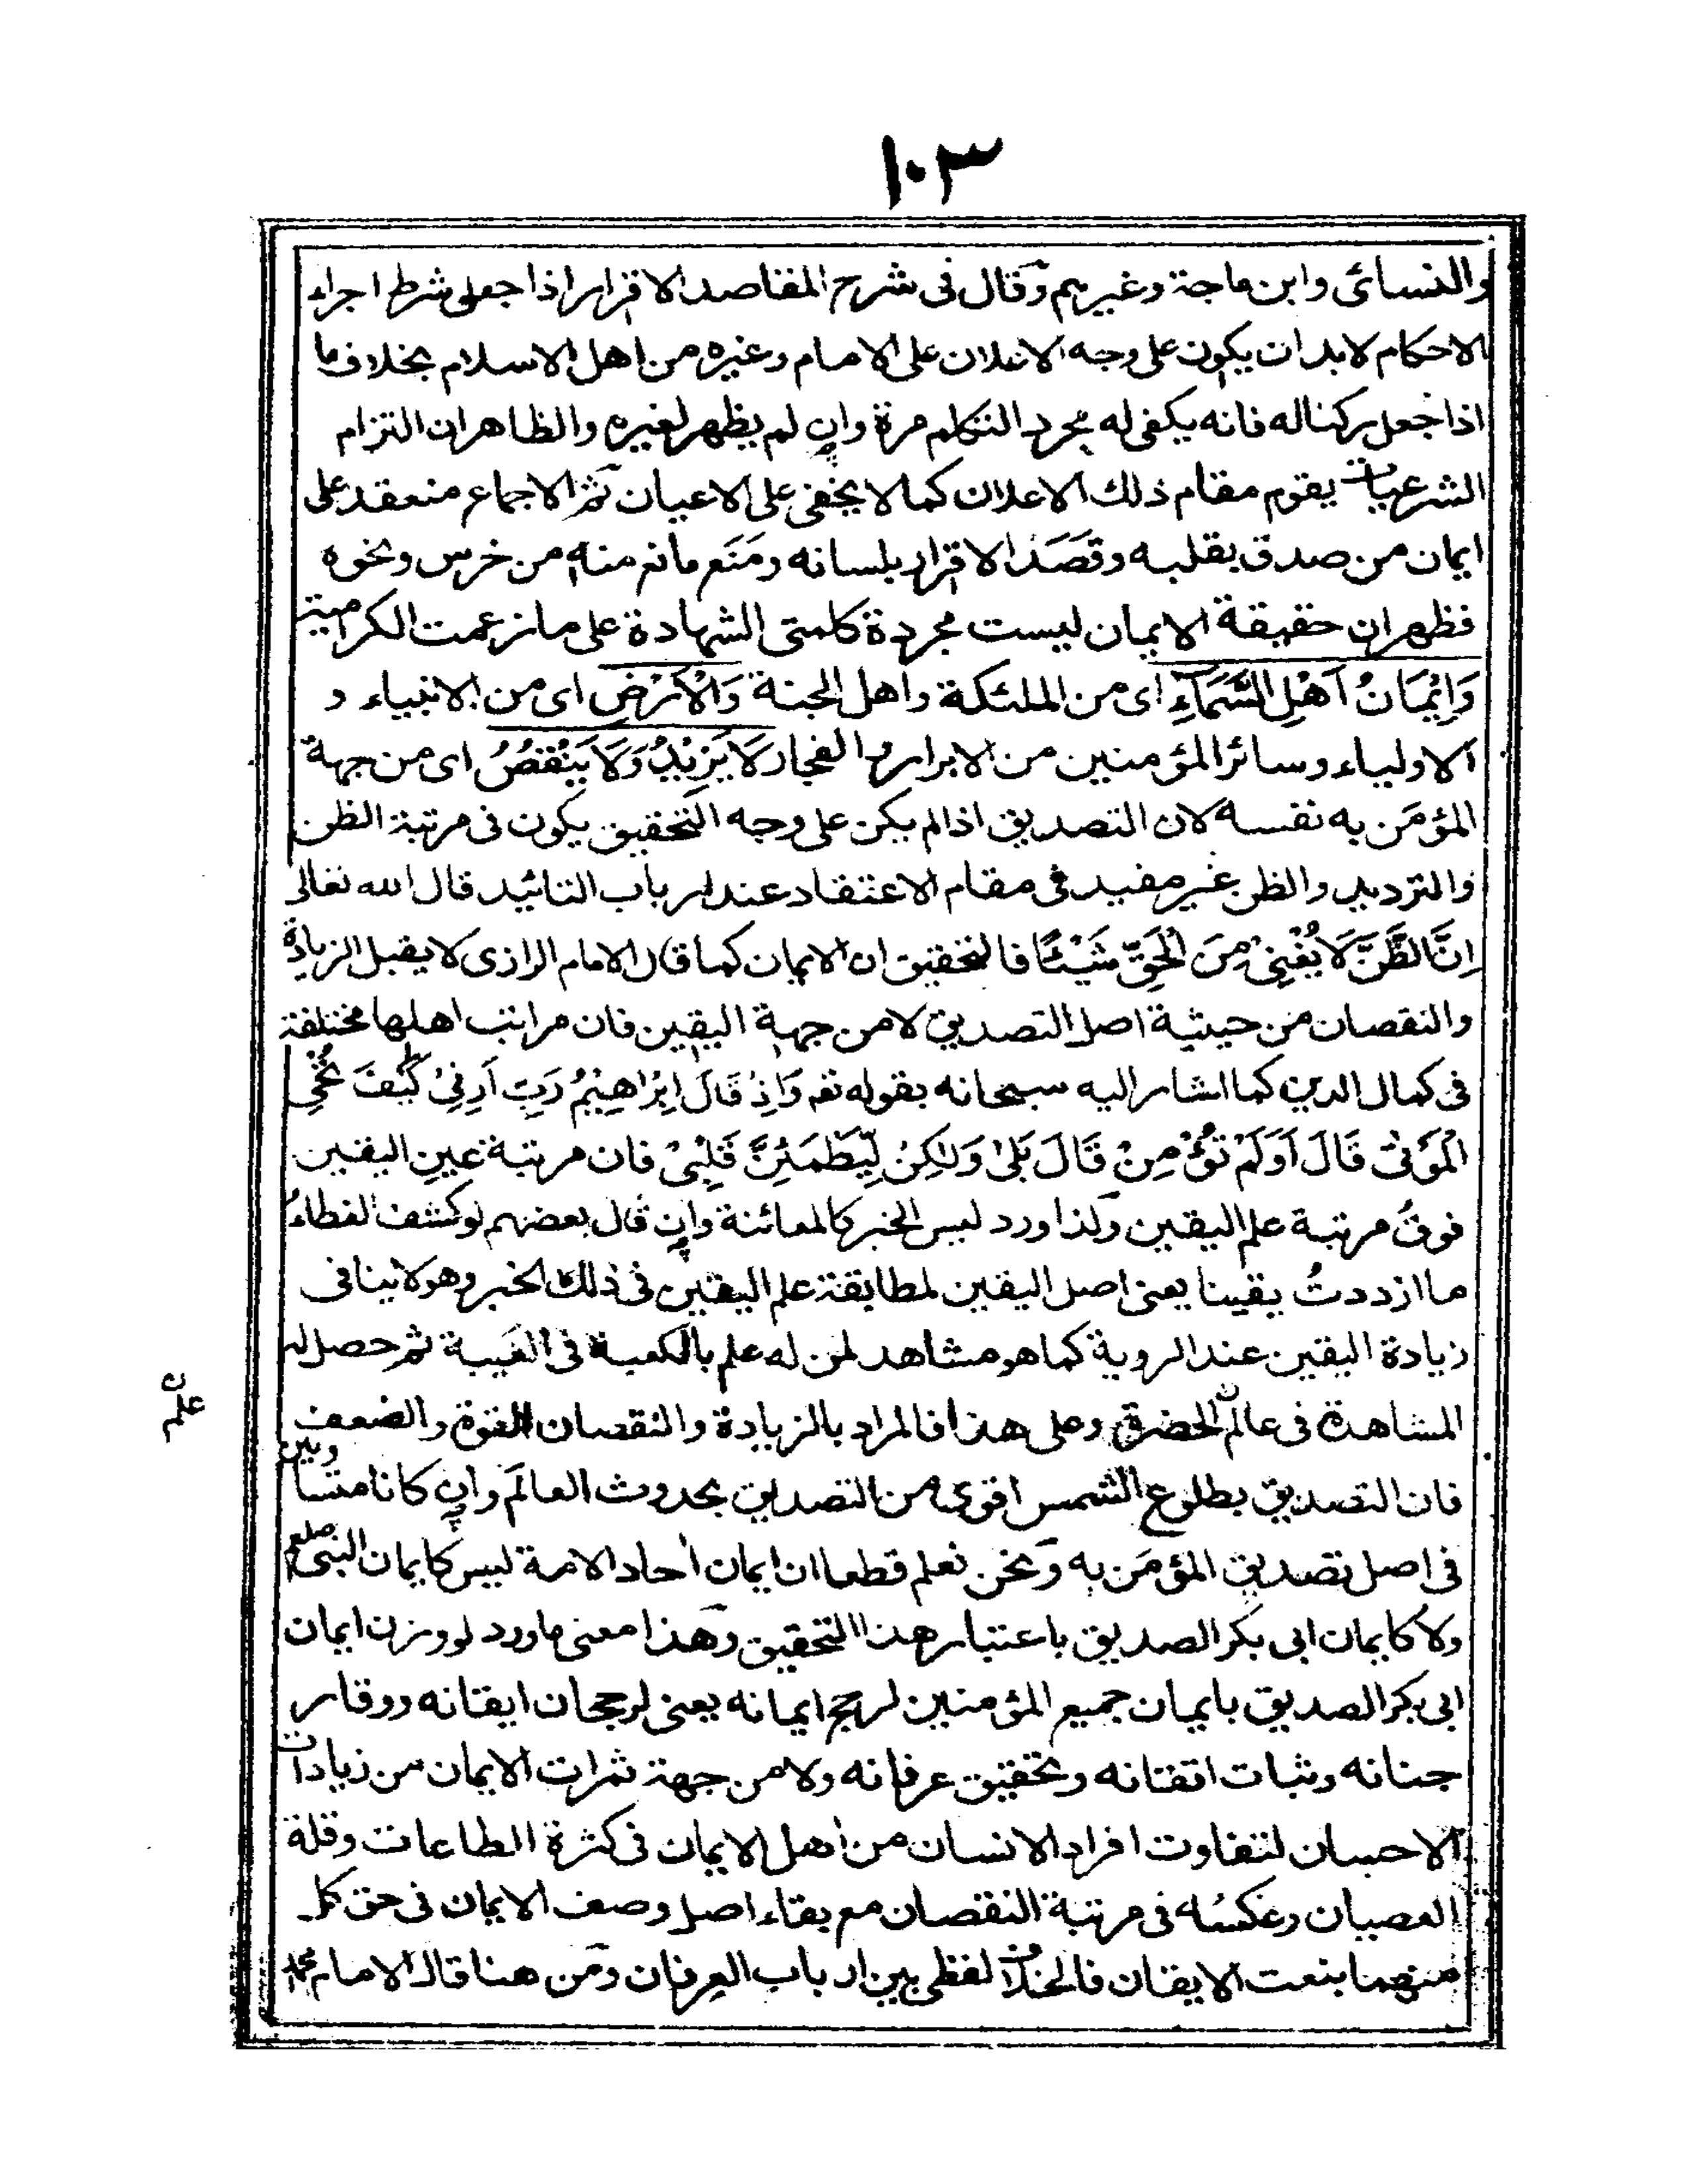 ١٠٣
والنسائى وابن ماجة وغيرهم وقال فى شرح المقاصد الاقرار اذا جعل شرط اجراء
الاحكام لابد ان يكون على وجه الاعلان على الامام وغيره من اهل الاسلام بخلاف ما
اذا جعل ركنا له فانه يكفى له مجرد التكلم مرة وان لم يظهر لغيره والظاهر ان التزام
الشرعيات يقوم مقام ذلك الاعلان كما لا يخفى على الاعيان ثم الاجماع منعقد على
ايمان من صدق بقلبه وقَصَدَ الاقرار بلسانه ومَنَع مانع منه من خرس ونحوه
فظهر ان حقيقة الايمان ليست مجردة كلمتى الشهادة على ما زعمت الكرامية
وَاِيْمَانُ اَهْلِ السَّمَآءِ اى من الملئكة واهل الجنة وَالْاَرْضِ اى من الانبياء و
الاولياء وسائر المؤمنين من الابرار والفجار لَا يَزِيْدُ وَلَا يَنْقُصُ اى من جهة
المؤمَن به نفسه لان التصديق اذا لم يكن على وجه التحقيق يكون فى مرتبة الظن
والترديد والظن غير مفيد فى مقام الاعتقاد عند ارباب التائيد قال الله تعالى
اِنَّ الظَّنَّ لَا يُغْنِىْ مِنَ الْحَقِّ شَيْئًا فالتحقيق ان الايمان كما قال الامام الرازى لا يقبل الزيادة
والنقصان من حيثية اصل التصديق لا من جهة اليقين فان مراتب اهلها مختلفة
فى كمال الدين كما اشار اليه سبحانه بقوله تعـ وَاِذْ قَالَ اِبْرَاهِيْمُ رَبِّ اَرِنِىْ كَيْفَ تُحْىِ
الْمَوْتٰى قَالَ اَوَلَمْ تُؤْمِنْ قَالَ بَلٰى وَلٰكِنْ لِّيَطْمَئِنَّ قَلْبِىْ فان مرتبة عين اليقين
فوق مرتبة علم اليقين ولذا ورد ليس الخبر كالمعائنة وان قال بعضهم لو كشف الغطاء
ما ازددتُ يقينا يعنى اصل اليقين لمطابقة علم اليقين فى ذلك الخبر وهو لا ينافى
زيادة اليقين عند الروية كما هو مشاهد لمن له علم بالكعبة فى الغيبة ثم حصل له
المشاهدة فى عالم الحضرة وعلى هذا فالمراد بالزيادة والنقصان القوة والضعف
فان التصديق بطلوع الشمس اقوى من التصديق بحدوث العالَم وان كانا متساويين
فى اصل تصديق المؤمَن به ونحن نعلم قطعا ان ايمان اٰحاد الامة ليس كايمان النبى صلعم
ولا كايمان ابى بكر الصديق باعتبار هذا التحقيق وهذا معنى ما ورد لو وزن ايمان
ابى بكر الصديق بايمان جميع المؤمنين لرجح ايمانه يعنى لرجحان ايقانه ووقار
جنانه وثبات اتقانه وتحقيق عرفانه ولا من جهة ثمرات الايمان من زيادات
الاحسان لتفاوت افراد الانسان من اهل الايمان فى كثرة الطاعات وقلة
العصيان وعكسُه فى مرتبة النقصان مع بقاء اصل وصف الايمان فى حق كل
منهما بنعت الايقان فالخلاف لفظى بين ارباب العرفان ومن هنا قال الامام محمد